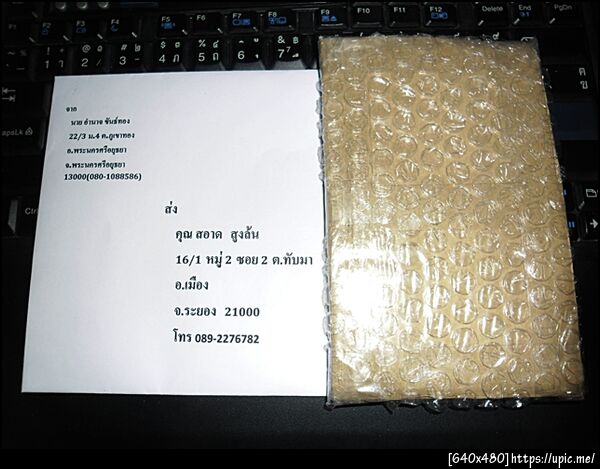 F2 F3 F4 F5 F6 F7 F8 F9 F10 F11 F12 Delete End PgDn
จาก
นาย อำนาจ ขันธ์ทอง
22/3 ม.4 ต.ภูเขาทอง
อ.พระนครศรีอยุธยา
จ.พระนครศรีอยุธยา
13000(080-1088586)
ส่ง
คุณ สอาด สูงล้น
16/1 หมู่ 2 ซอย 2 ต.ทับมา
อ.เมือง
จ.ระยอง 21000
โทร 089-2276782
[640x480]https://upic.me/